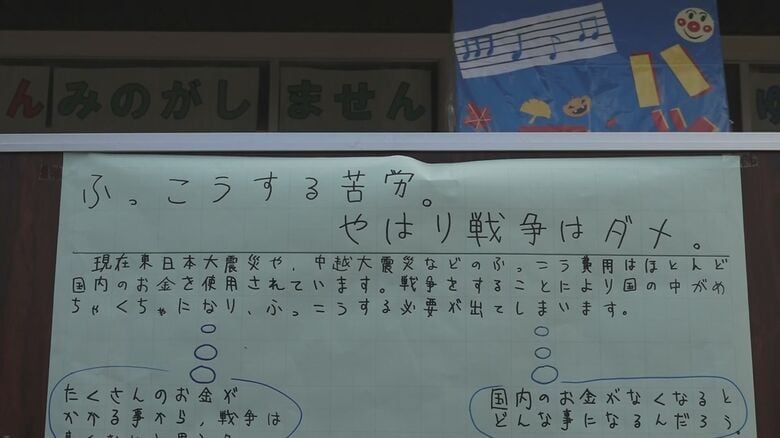 ん みのがし ません
ふっこうする苦労。
やはり戦争はダメ。
現在東日本大震災や、中越大震災などのふっこう費用はほとんど
国内のお金を使用されています。戦争をすることにより国の中がめ
ちゃくちゃになり、ふっこうする必要が出てしまいます。
たくさんのお金が
かかる事から、戦争は
国内のお金がなくなると
どんな事になるんだろう